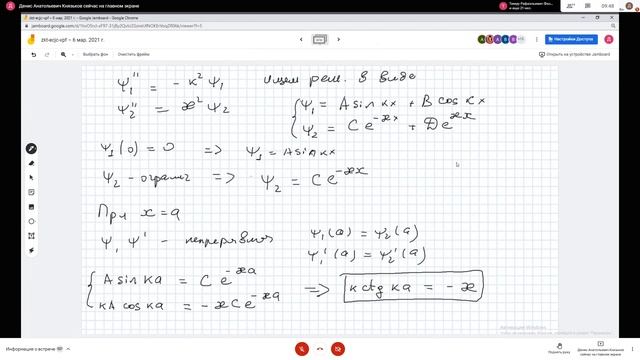 Денис Анатольевич Князьков сейчас на главном экране
zkt-ecjc-vpf – 6 мар. 2021 г. – Google Jamboard - Google Chrome
zkt-ecjc-vpf – 6 мар. 2021 г.
Настройки Доступа
Выбрать фон
Очистить рамку
Открыть на устройстве Jamboard
09:48
ψ₁'' = - κ² ψ₁ ищем реш. в виде
ψ₂'' = æ² ψ₂
{ ψ₁ = A sin κx + B cos κx
ψ₂ = C e^{-æx} + D e^{æx}
ψ₁(0) = 0 => ψ₁ = A sin κx
ψ₂ - огранич => ψ₂ = C e^{-æx}
При x = a
ψ, ψ' - непрерывны
ψ₁(a) = ψ₂(a)
ψ₁'(a) = ψ₂'(a)
{ A sin κa = C e^{-æa}
κA cos κa = - æC e^{-æa}
=> κ ctg κa = - æ
Активация Windows
Информация о встрече
Поднять руку
Денис Анатольевич Князьков сейчас на главном экране